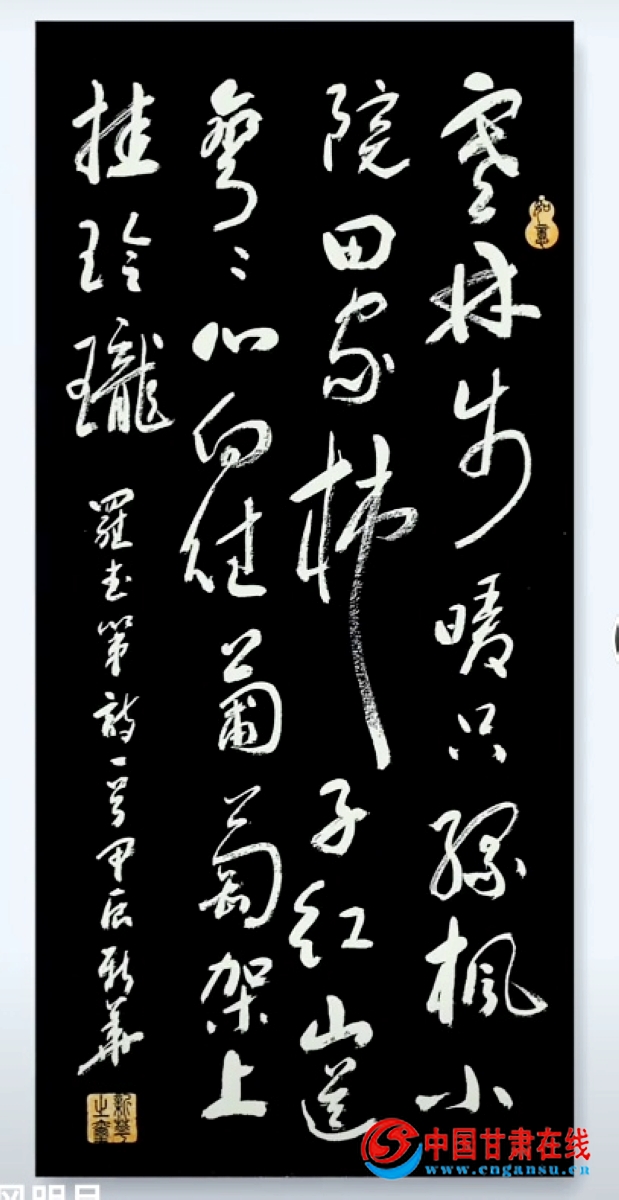 寒林步暖只緣楓小
院田家柿子紅山道
彎〻心向往葡萄架上
挂玲瓏
詩一首甲辰新華
如意
中国甘肃在线
www.cngansu.cn